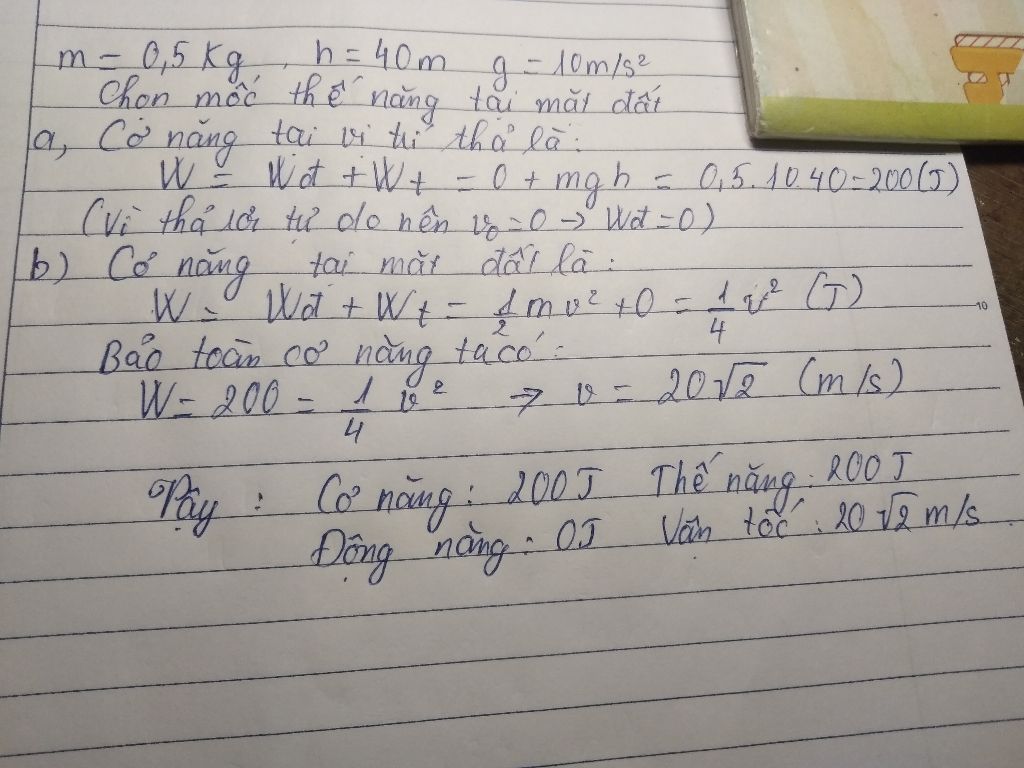 m = 0,5 Kg , h = 40m g = 10m/s²
Chọn mốc thế năng tại mặt đất
a, Cơ năng tại vị trí thả là:
W = Wđ + Wt = 0 + mgh = 0,5.10.40 = 200 (J)
(Vì thả rơi tự do nên v₀ = 0 → Wđ = 0)
b) Cơ năng tại mặt đất là:
W = Wđ + Wt = 1/2 mv² + 0 = 1/4 v² (J)
10
Bảo toàn cơ năng ta có:
W = 200 = 1/4 v² → v = 20√2 (m/s)
Vậy : Cơ năng: 200J Thế năng: 200J
Động năng: 0J Vận tốc: 20√2 m/s